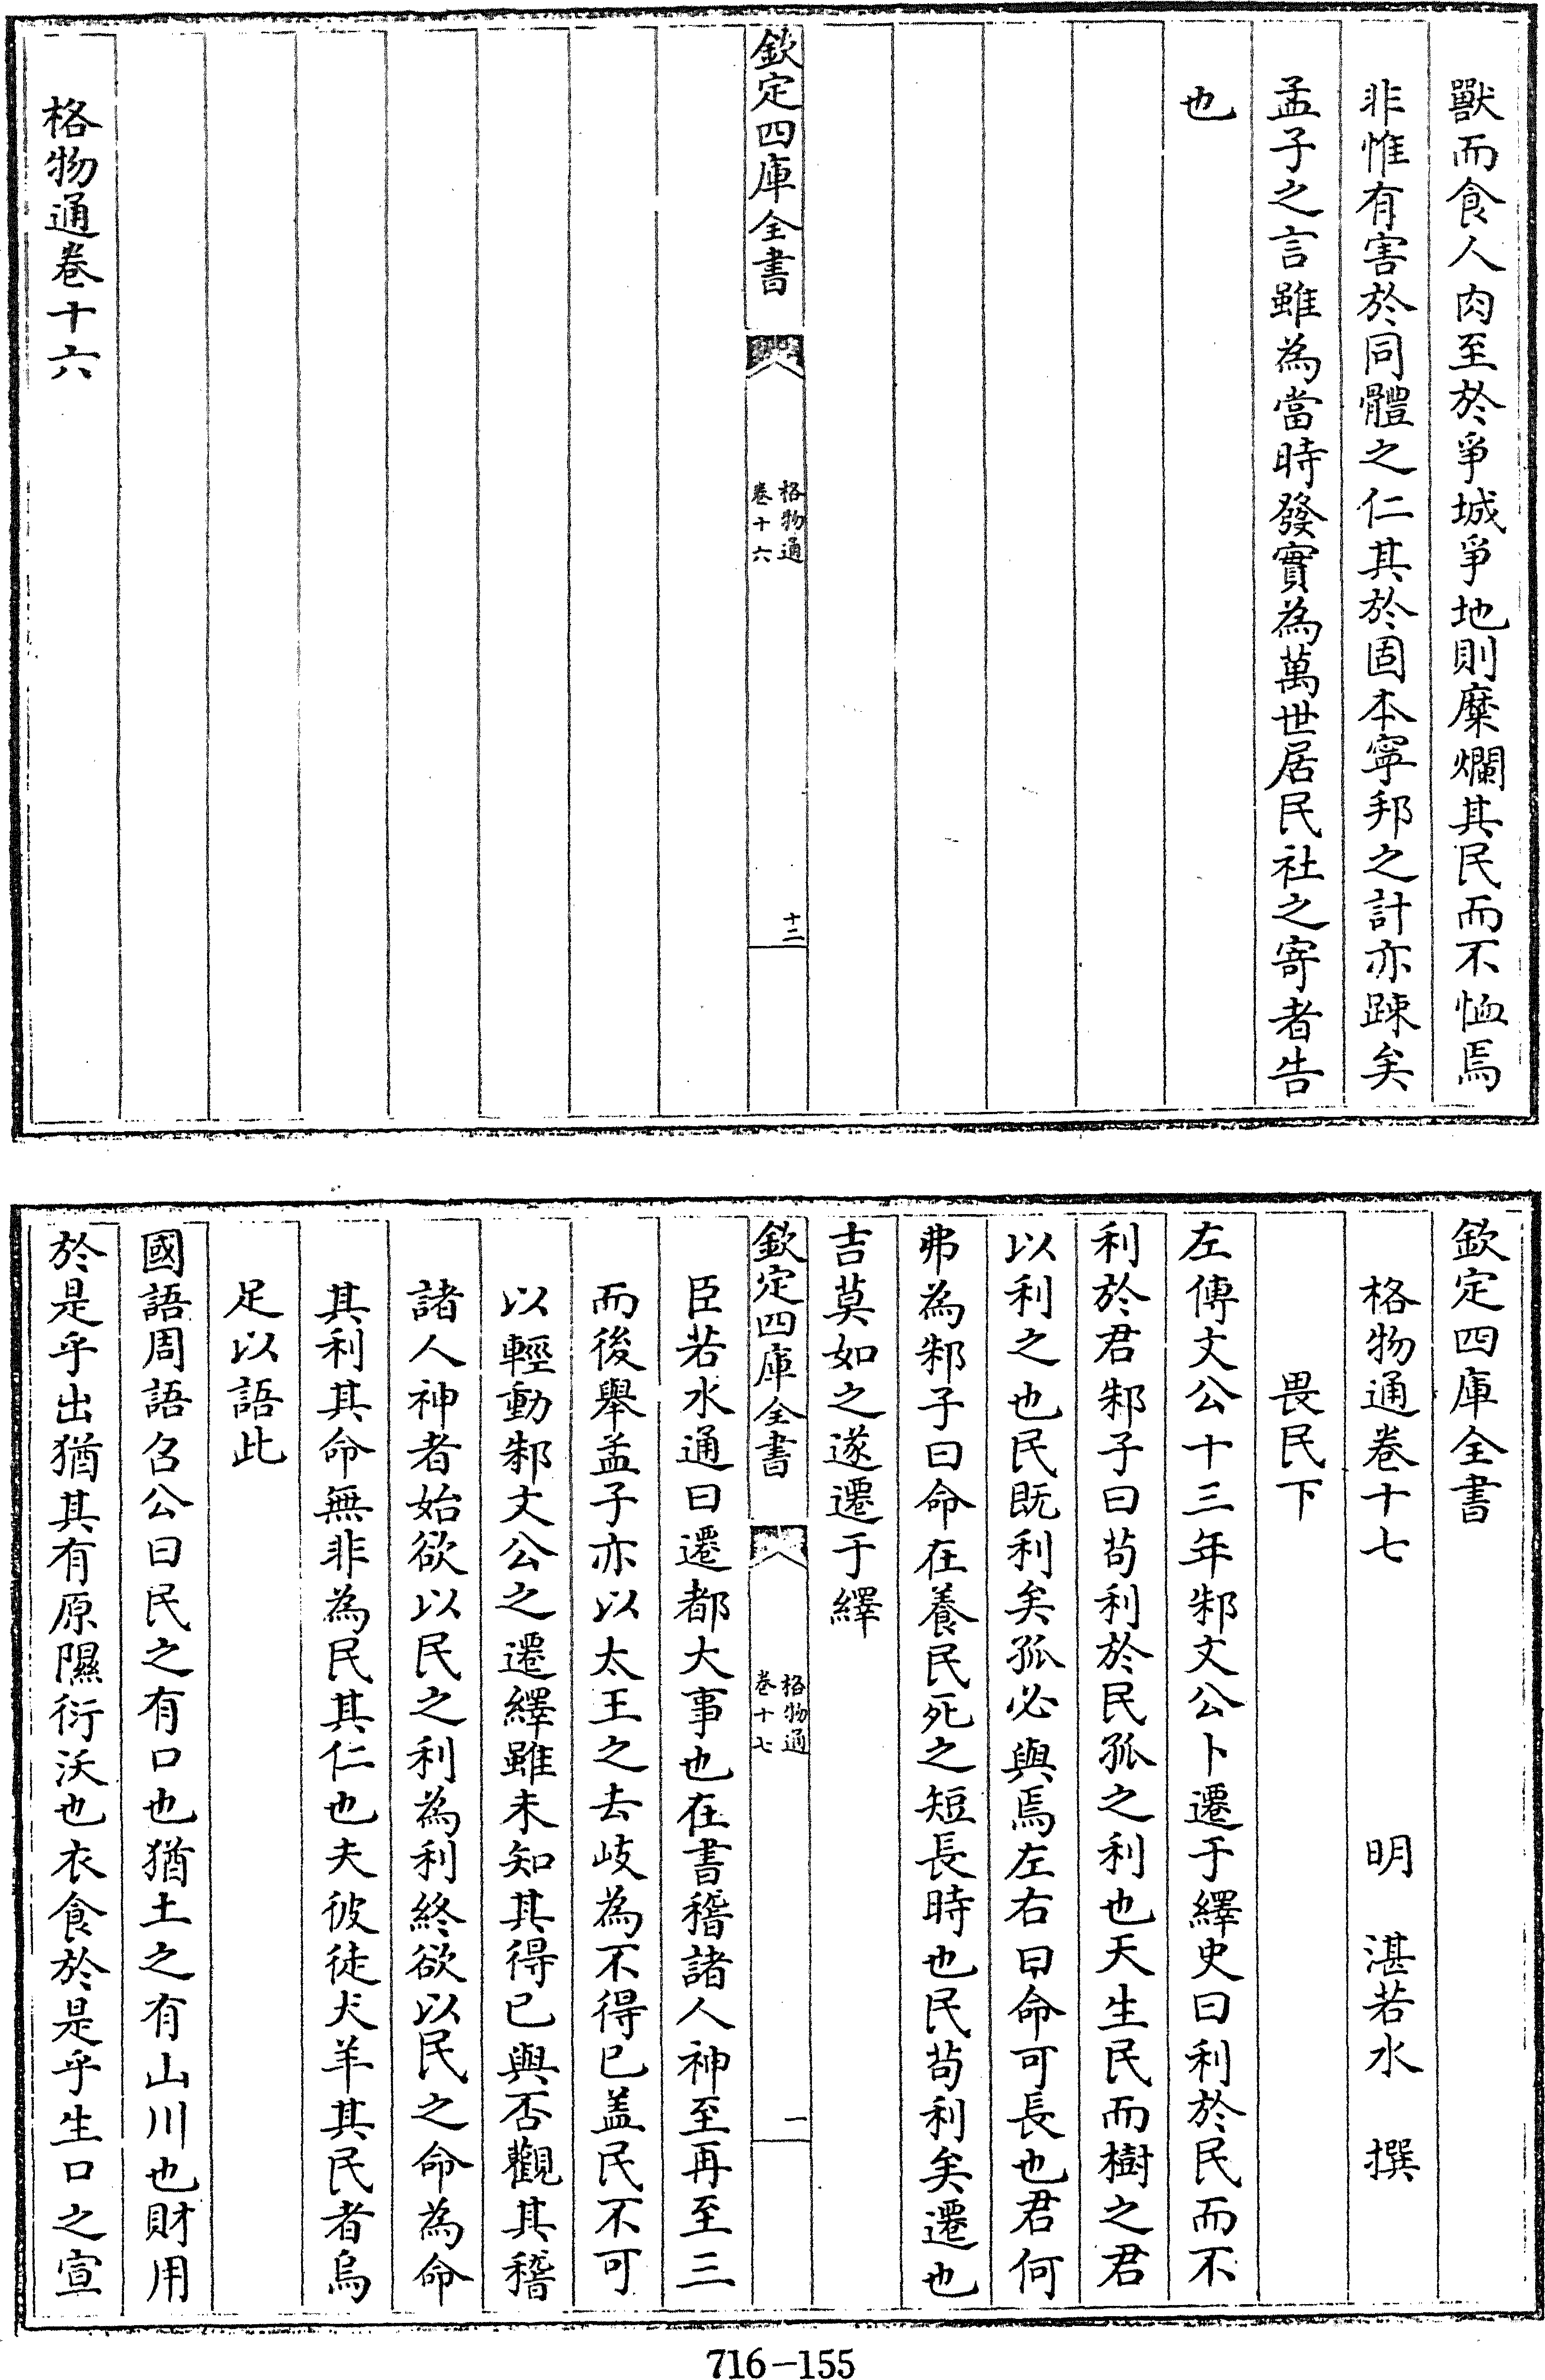 獸而食人肉至於爭城爭地則糜爛其民而不恤焉
非惟有害於同體之仁其於固本寧邦之計亦踈矣
孟子之言雖為當時發實為萬世居民社之寄者告
也
欽定四庫全書
格物通
卷十六
十二
格物通卷十六
欽定四庫全書
格物通卷十七
明 湛若水 撰
畏民下
左傳文公十三年邾文公卜遷于繹史曰利於民而不
利於君邾子曰苟利於民孤之利也天生民而樹之君
以利之也民既利矣孤必與焉左右曰命可長也君何
弗為邾子曰命在養民死之短長時也民苟利矣遷也
吉莫如之遂遷于繹
欽定四庫全書
格物通
卷十七
一
臣若水通曰遷都大事也在書稽諸人神至再至三
而後舉孟子亦以太王之去岐為不得已盖民不可
以輕動邾文公之遷繹雖未知其得已與否觀其稽
諸人神者始欲以民之利為利終欲以民之命為命
其利其命無非為民其仁也夫彼徒犬羊其民者烏
足以語此
國語周語召公曰民之有口也猶土之有山川也財用
於是乎出猶其有原隰衍沃也衣食於是乎生口之宣
716-155